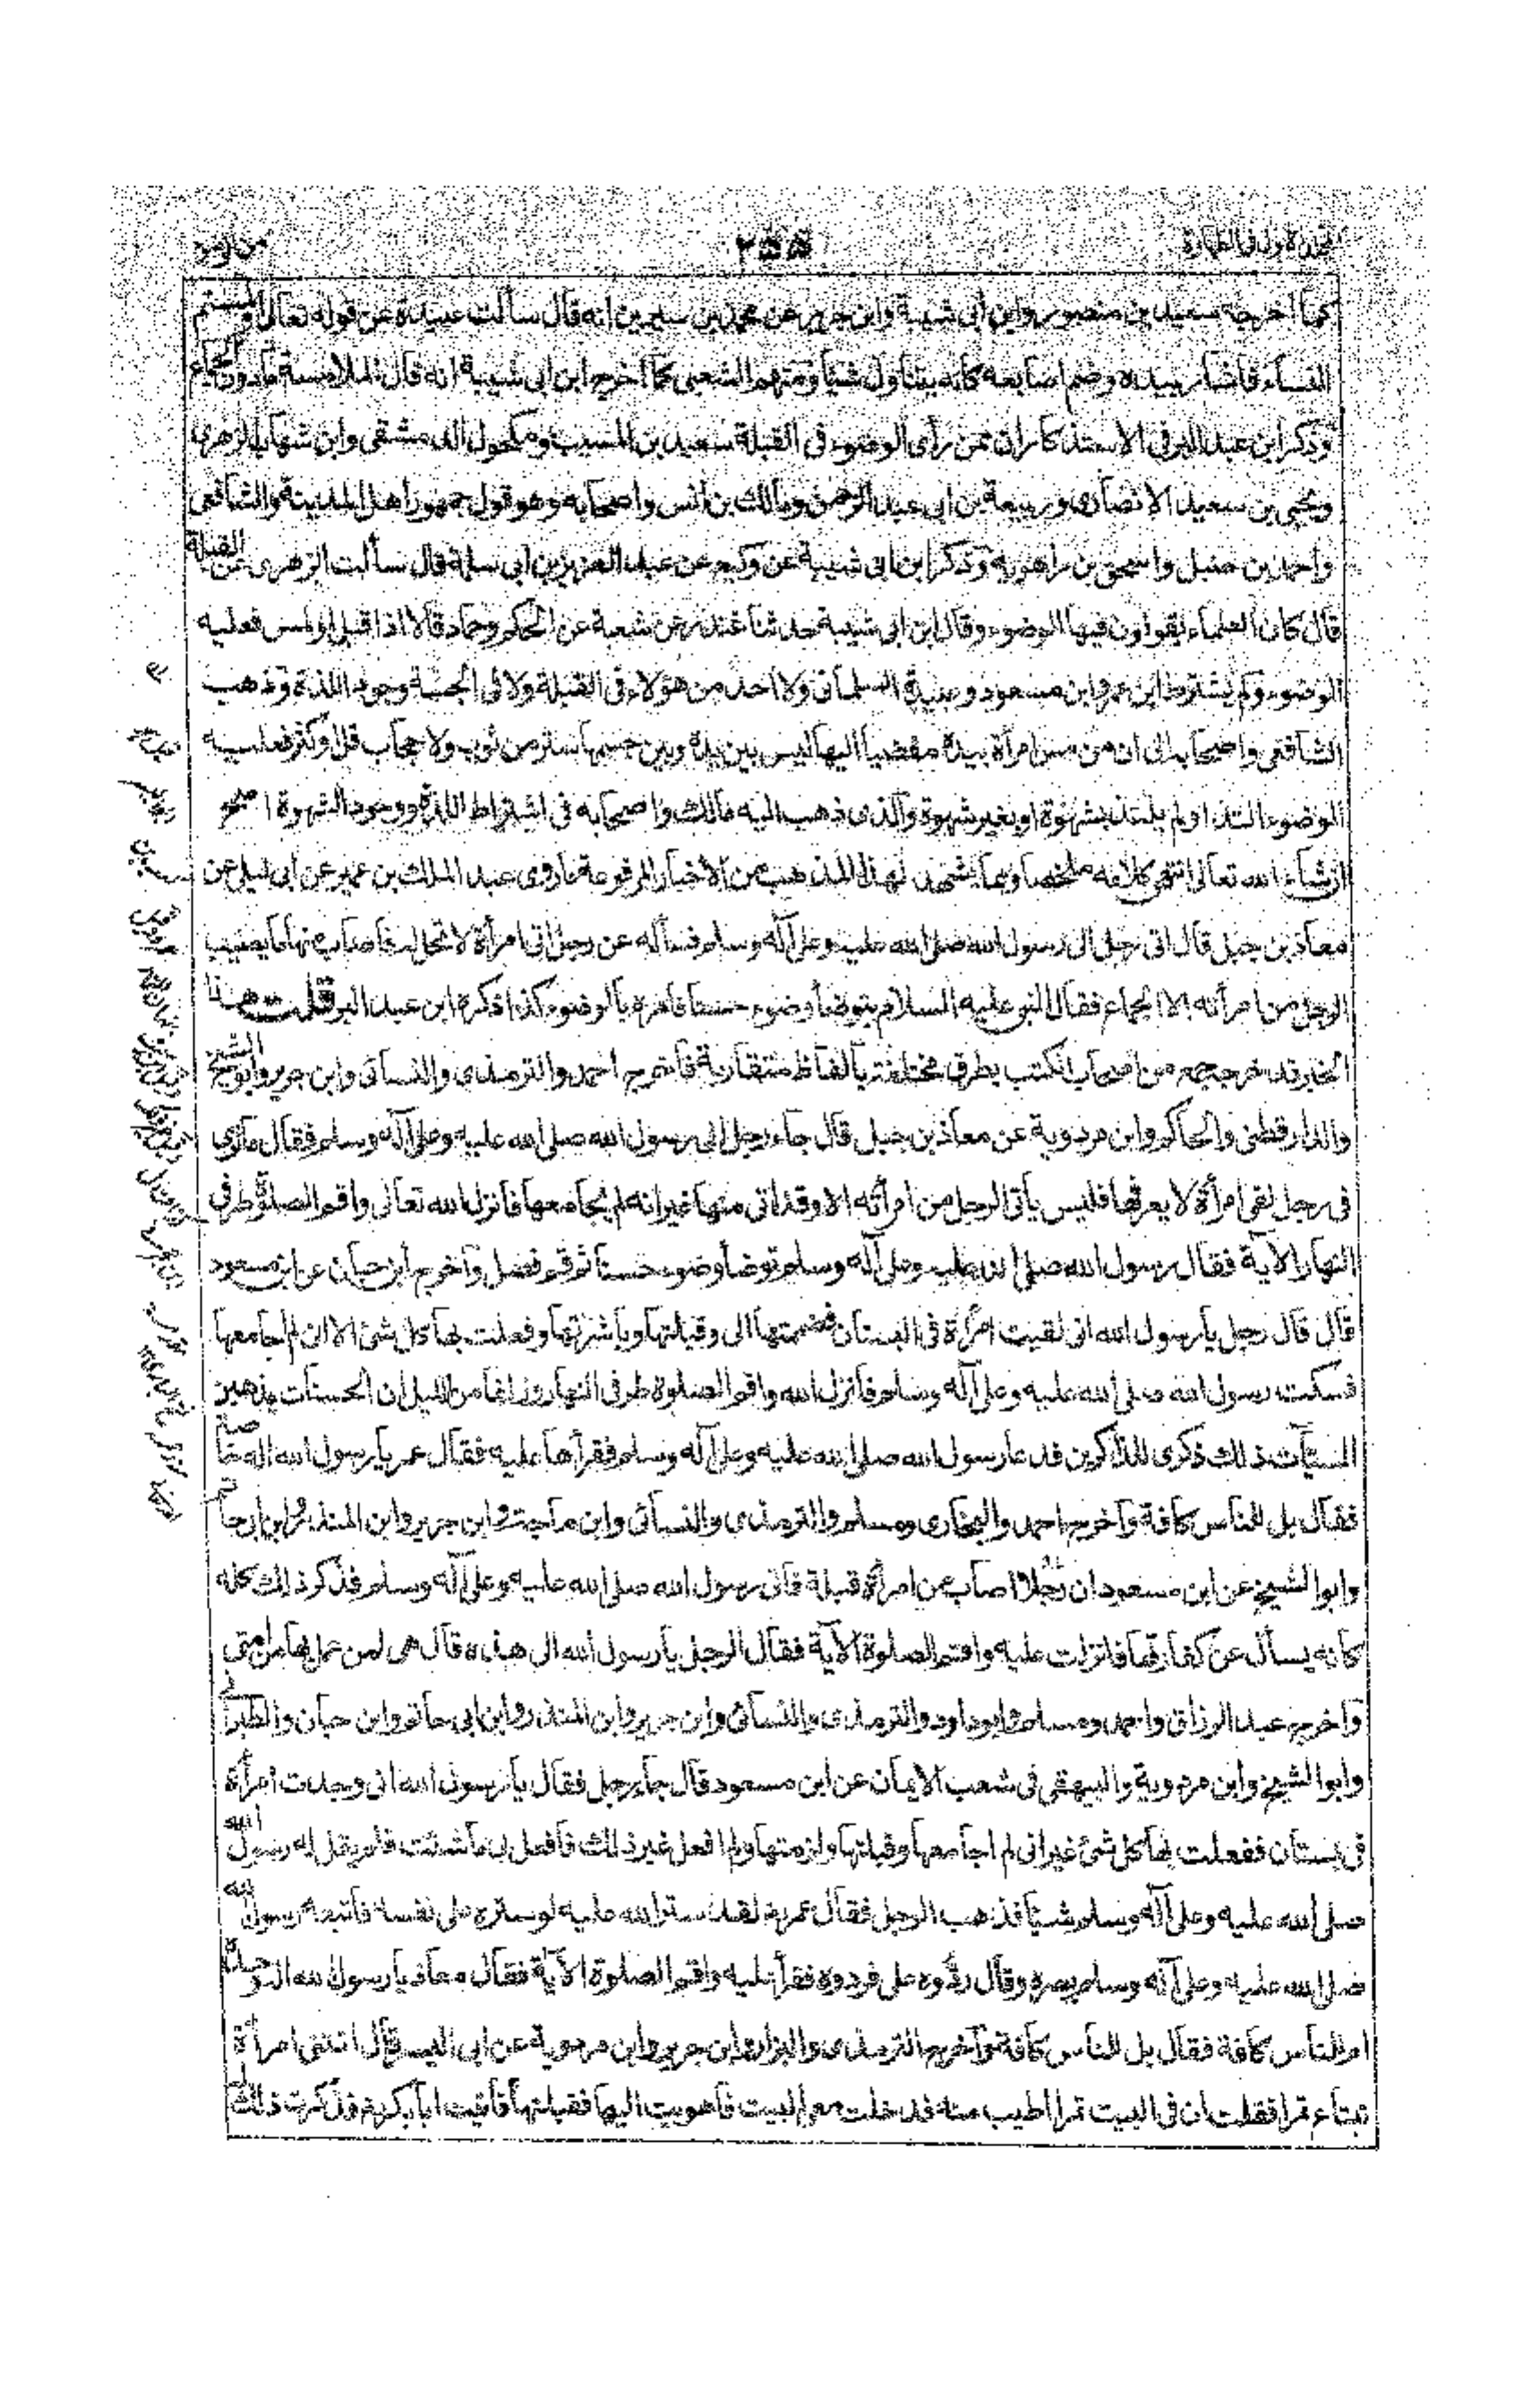 كما اخرجه سعيد بن منصور وابن أبي شيبة وابن جرير عن محمد بن سيرين انه قال سألت عبيدة عن قوله تعالى او لمستم
النساء فاشار بيده وضم اصابعه كانه يتناول شيئا ومنهم الشعبي كما أخرجه ابن ابى شيبة انه قال الملامسة مادون الجماع
وذكر ابن عبد البر في الاستذكار ان ممن رأى الوضوء في القبلة سعيد بن المسيب ومكحول الدمشقى وابن شهاب الزهرى
ويحيى بن سعيد الانصارى وربيعة بن ابى عبد الرحمن ومالك بن انس واصحابه وهو قول جمهور اهل المدينة والشافعى
واحمد بن حنبل واسحق بن راهويه وذكر ابن ابى شيبة عن وكيع عن عبد العزيز بن ابى سلمة قال سألت الزهرى عن القبلة
قال كان العلماء يقولون فيها الوضوء وقال ابن ابى شيبة حدثنا غندر عن شعبة عن الحكم وحماد قالا اذا قبل او لمس فعليه
الوضوء ولم يشترط ابن عمر وابن مسعود وعبيدة السلمانى ولا احد من هؤلاء في القبلة ولا فى الجسة وجود اللذة وذهب
الشافعى واصحابه الى ان من مس امرأة بيده مفضيا اليها ليس بين يده وبين جسمها ستر من ثوب ولا حجاب قل او كثر فعليه
الوضوء التذ او لم يلتذ بشهوة او بغير شهوة والذى ذهب اليه مالك واصحابه فى اشتراط اللذة ووجود الشهوة اصح
ان شاء الله تعالى انتهى كلامه ملخصا ومما يشهد لهذا المذهب من الاخبار المرفوعة ما روى عبد الملك بن عمير عن ابى ليلى عن
معاذ بن جبل قال اتى رجل الى رسول الله صلى الله عليه وعلى آله وسلم فسأله عن رجل اتى امرأة لا تحل له فاصاب منها ما يصيب
الرجل من امرأته الا الجماع فقال النبى عليه السلام يتوضأ وضوء حسنا فامره بالوضوء كذا ذكره ابن عبد البر قلت هذا
الخبر قد خرجه جمع من اصحاب الكتب بطرق مختلفة بالفاظ متقاربة فاخرجه احمد والترمذى والنسائى وابن جرير وابو الشيخ
والدارقطنى والحاكم وابن مردوية عن معاذ بن جبل قال جاء رجل الى رسول الله صلى الله عليه وعلى آله وسلم فقال ما ترى
فى رجل لقى امرأة لا يعرفها فليس يأتى الرجل من امرأته الا وقد اتى منها غير انه لم يجامعها فانزل الله تعالى واقم الصلوة طرفى
النهار الآية فقال رسول الله صلى الله عليه وعلى آله وسلم توضأ وضوء حسنا ثم قم فصل وأخرج ابن حبان عن ابن مسعود
قال قال رجل يا رسول الله انى لقيت امرأة فى البستان فضممتها الى وقبلتها وباشرتها وفعلت بها كل شئ الا انى لم اجامعها
فسكت رسول الله صلى الله عليه وعلى آله وسلم فانزل الله واقم الصلوة طرفى النهار وزلفا من الليل ان الحسنات يذهبن
السيئات ذلك ذكرى للذاكرين فدعا رسول الله صلى الله عليه وعلى آله وسلم فقرأها عليه فقال عمر يا رسول الله اله خاصة
فقال بل للناس كافة وأخرجه احمد والبخارى ومسلم والترمذى والنسائى وابن ماجة وابن جرير وابن المنذر وابن ابى حاتم
وابو الشيخ عن ابن مسعود ان رجلا اصاب من امرأة قبلة فاتى رسول الله صلى الله عليه وعلى آله وسلم فذكر ذلك كله
كانه يسأل عن كفارتها فانزلت عليه واقم الصلوة الآية فقال الرجل يا رسول الله الى هذه قال هى لمن عمل بها من امتى
واخرجه عبد الرزاق واحمد ومسلم وابو داود والترمذى والنسائى وابن جرير وابن المنذر وابن ابى حاتم وابن حبان والطبرانى
وابو الشيخ وابن مردوية والبيهقى فى شعب الايمان عن ابن مسعود قال جاء رجل فقال يا رسول الله انى وجدت امرأة
فى بستان ففعلت بها كل شئ غير انى لم اجامعها وقبلتها ولزمتها ولم افعل غير ذلك فافعل بى ما شئت فلم يقل له رسول الله
صلى الله عليه وعلى آله وسلم شيئا فذهب الرجل فقال عمر لقد ستر الله عليه لو ستره على نفسه فاتبعه رسول الله
صلى الله عليه وعلى آله وسلم بصره وقال ردوه على فردوه فقرأ عليه واقم الصلوة الآية فقال معاذ يا رسول الله اله وحده
ام للناس كافة فقال بل للناس كافة وأخرجه الترمذى والبزار وابن جرير وابن مردوية عن ابى اليسر قال اتتنى امرأة
تبتاع تمرا فقلت ان فى البيت تمرا اطيب منه فدخلت معى البيت فاهويت اليها فقبلتها فأتيت ابا بكر فذكرت ذلك